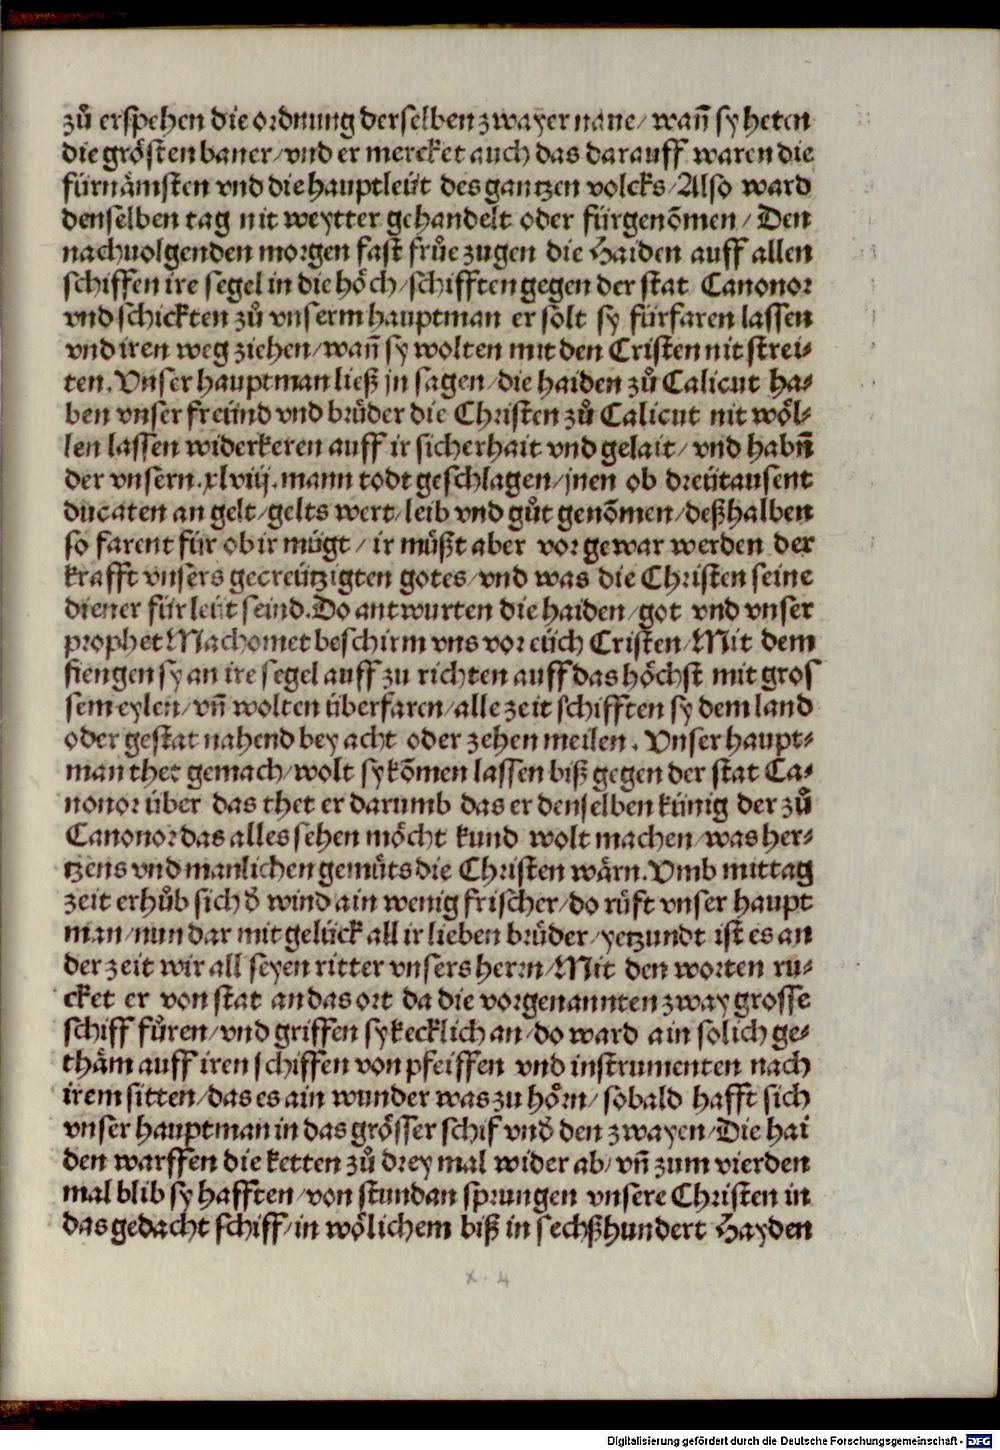 zů erspehen die ordnung derselben zwayer naue/ wañ sy heten
die grösten baner/vnd er mercket auch das darauff waren die
fürnämsten vnd die hauptleüt des gantzen volcks/Also ward
denselben tag nit weytter gehandelt oder fürgenõmen/ Den
nachuolgenden morgen fast frůe zugen die Haiden auff allen
schiffen ire segel in die höch/schifften gegen der stat Canonor
vnd schickten zů vnserm hauptman er solt sy fürfaren lassen
vnd iren weg ziehen/wañ sy wolten mit den Cristen nit strei⸗
ten. Vnser hauptman ließ jn sagen/die haiden zů Calicut ha⸗
ben vnser freünd vnd brüder die Christen zů Calicut nit wöl⸗
len lassen widerkeren auff ir sicherhait vnd gelait/ vnd habñ
der vnsern.xlviij.mann todt geschlagen/jnen ob dreütausent
ducaten an gelt/gelts wert/leib vnd gůt genõmen/deßhalben
so farent für ob ir mügt/ ir müßt aber vor gewar werden der
krafft vnsers gecreützigten gotes/vnd was die Christen seine
diener für leüt seind.Do antwurten die haiden/got vnd vnser
prophet Machomet beschirm vns vor eüch Cristen/Mit dem
fiengen sy an ire segel auff zu richten auff das höchst mit gros
sem eylen/vñ wolten überfaren/alle zeit schifften sy dem land
oder gestat nahend bey acht oder zehen meilen. Vnser haupt⸗
man thet gemach/wolt sy kõmen lassen biß gegen der stat Ca⸗
nonor über das thet er darumb das er denselben künig der zů
Canonor das alles sehen möcht kund wolt machen/was her⸗
tzens vnd manlichen gemüts die Christen wärn.Vmb mittag
zeit erhůb sich d̕ wind ain wenig frischer/do rüft vnser haupt
man/nun dar mit gelück all ir lieben brüder/yetzundt ist es an
der zeit wir all seyen ritter vnsers herrn/Mit den worten ru⸗
cket er von stat an das ort da die vorgenannten zway grosse
schiff fůren/vnd griffen sy kecklich an/do ward ain solich ge⸗
thäm auff iren schiffen von pfeiffen vnd instrumenten nach
irem sitten/das es ain wunder was zu hörn/ sobald hafft sich
vnser hauptman in das grösser schif vnd̕ den zwayen/Die hai
den warffen die ketten zů drey mal wider ab/vñ zum vierden
mal blib sy hafften/von stundan sprungen vnsere Christen in
das gedacht schiff/in wölichem biß in sechßhundert Hayden
x. 4
Digitalisierung gefördert durch die Deutsche Forschungsgemeinschaft - DFG